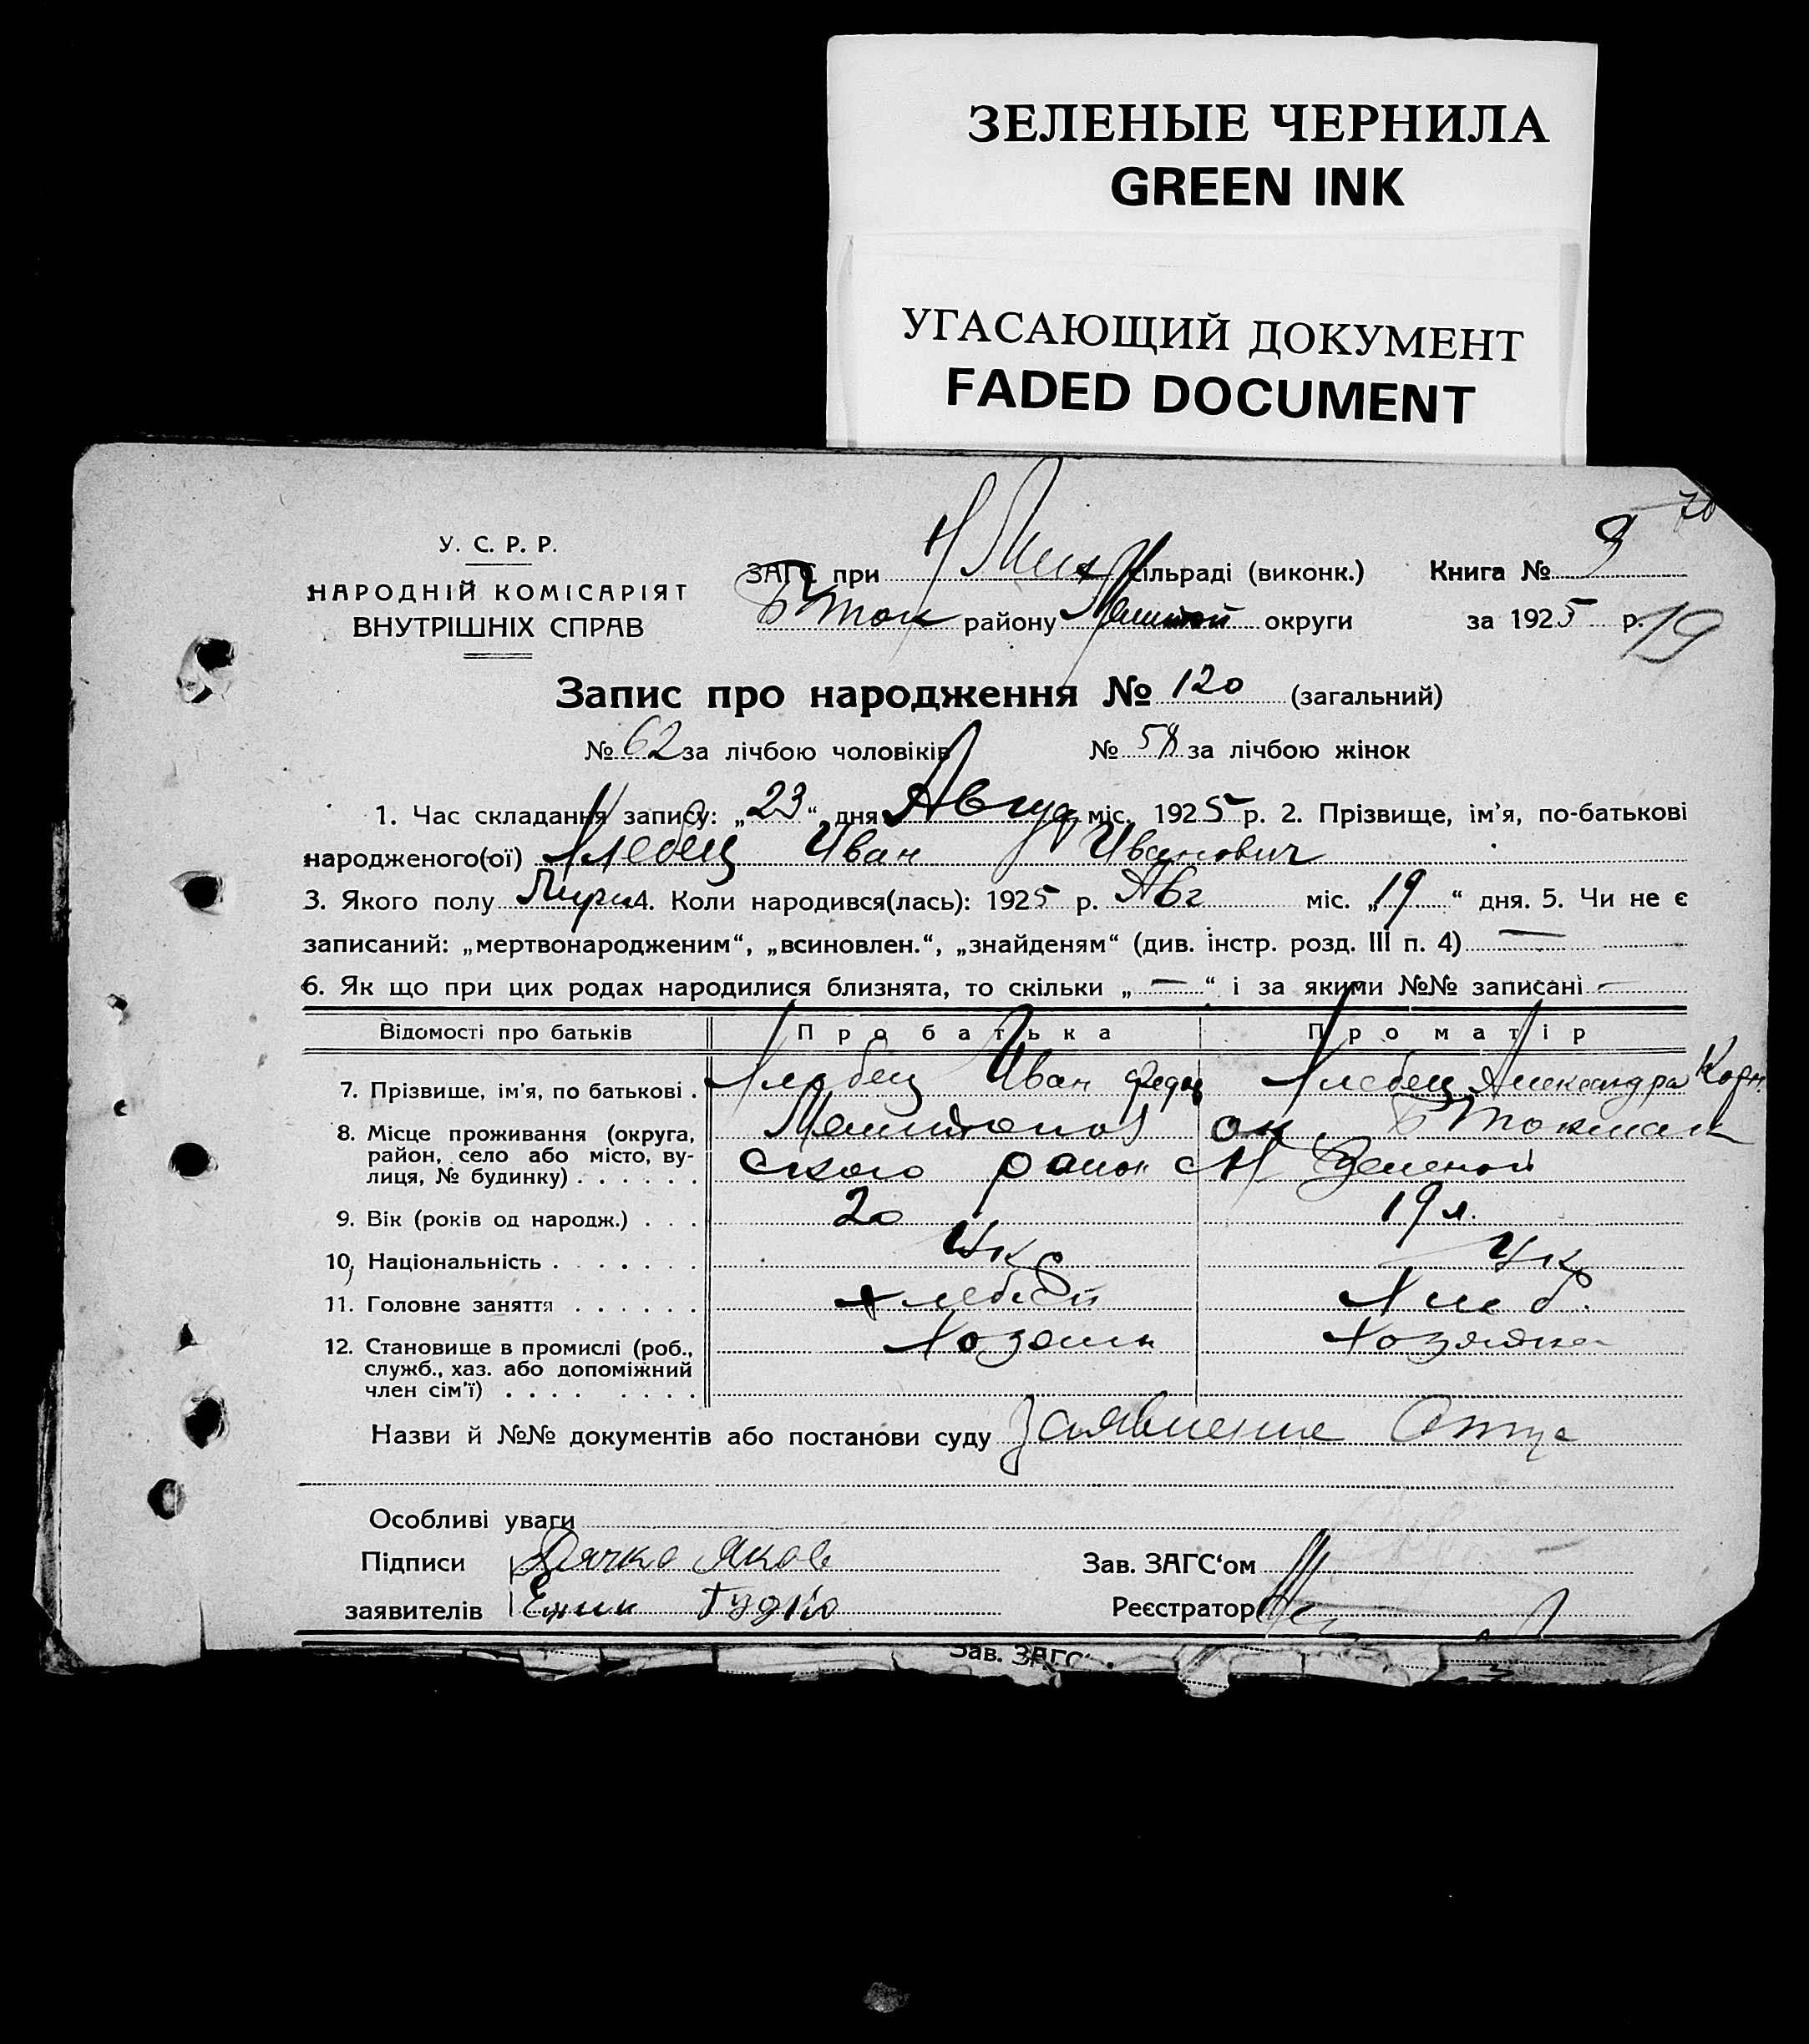 ЗЕЛЕНЫЕ ЧЕРНИЛА
GREEN INK
УГАСАЮЩИЙ ДОКУМЕНТ
FADED DOCUMENT
70
У. С. Р. Р.
НАРОДНІЙ КОМІСАРІЯТ
ВНУТРІШНІХ СПРАВ
ЗАГС при сільраді (виконк.) Книга №
Б Ток району округи за 1925 р. 19
Запис про народження № 120 (загальний)
№ 62 за лічбою чоловіків № 58 за лічбою жінок
1. Час складання запису: „23“ дня Август міс. 1925 р. 2. Прізвище, ім'я, по-батькові
народженого(ої) Хлебец Иван Иванович
3. Якого полу 4. Коли народився(лась): 1925 р. Авг міс. „19“ дня. 5. Чи не є
записаний: „мертвонародженим“, „всиновлен.“, „знайденям“ (див. інстр. розд. III п. 4) —
6. Як що при цих родах народилися близнята, то скільки „—“ і за якими №№ записані —
Відомості про батьків Про батька Про матір
7. Прізвище, ім'я, по батькові . Хлебец Иван Федор Хлебец Александра Корн.
8. Місце проживання (округа, Мелитопол ок Б Токмак
район, село або місто, ву- ского район с Н Зеленой
лиця, № будинку) . . . . . .
9. Вік (років од народж.) . . . 20 19 л.
10, Національність . . . . . . . Укр Укр
11. Головне заняття . . . . . . Хлеб.
12. Становище в промислі (роб., Хозяин Хозяйка
служб., хаз. або допоміжний
член сім'ї) . . . . . . . .
Назви й №№ документів або постанови суду Заявление Отца
Особливі уваги
Підписи Дячко Яков Зав. ЗАГС'ом
заявителів Гудко Реєстратор
Зав. ЗАГС'